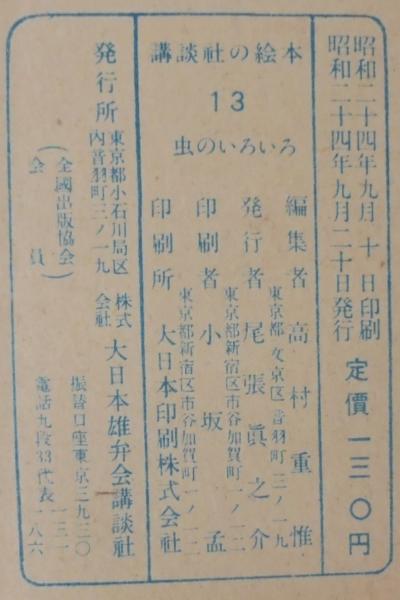 昭和二十四年九月十日印刷
昭和二十四年九月二十日発行
定價一三〇円
講談社の絵本
13
虫のいろいろ
編集者 高村重惟
東京都文京区音羽町三ノ一九
発行者 尾張眞之介
東京都新宿区市谷加賀町一ノ一二
印刷者 小坂孟
東京都新宿区市谷加賀町一ノ一二
印刷所 大日本印刷株式会社
発行所
東京都小石川局区
内音羽町三ノ一九
株式
会社
大日本雄弁会講談社
(全國出版協会
会員)
振替口座東京三九三〇
電話九段33代表一三一
一八六